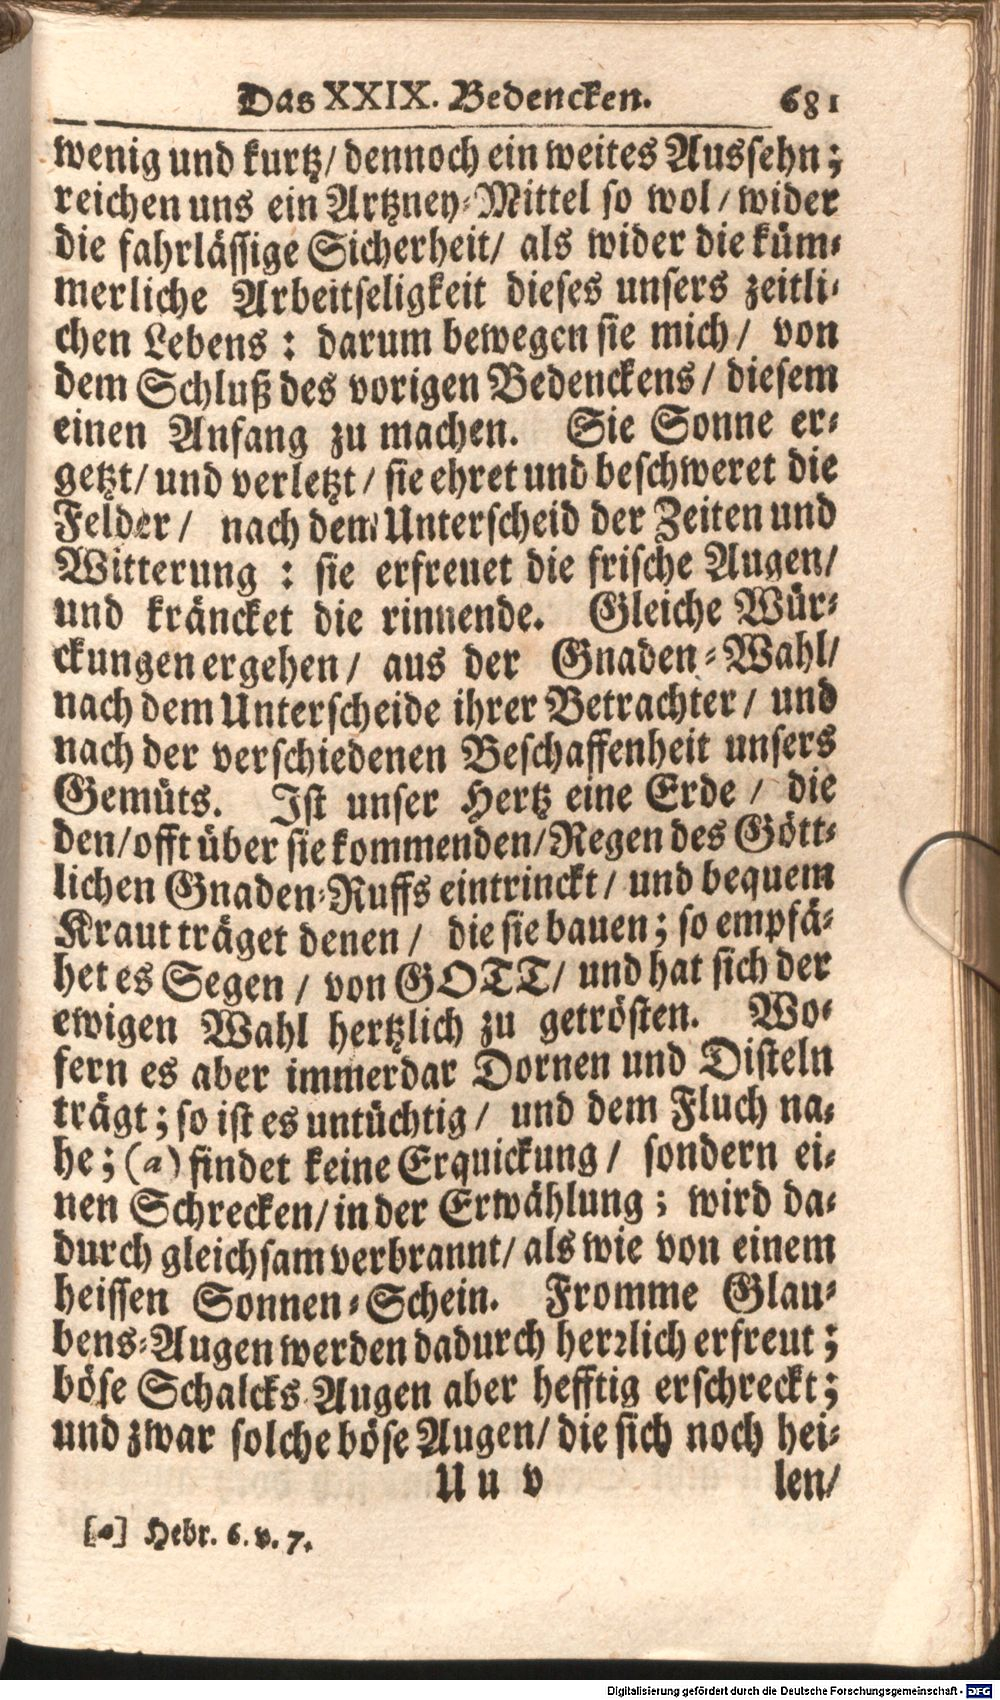 Das XXIX. Bedencken. 681
wenig und kurtz/ dennoch ein weites Aussehn;
reichen uns ein Artzney-Mittel so wol/ wider
die fahrlässige Sicherheit/ als wider die küm-
merliche Arbeitseligkeit dieses unsers zeitli-
chen Lebens: darum bewegen sie mich/ von
dem Schluß des vorigen Bedenckens/ diesem
einen Anfang zu machen. Sie Sonne er-
getzt/ und verletzt/ sie ehret und beschweret die
Felder/ nach dem Unterscheid der Zeiten und
Witterung: sie erfreuet die frische Augen/
und kräncket die rinnende. Gleiche Wür-
ckungen ergehen/ aus der Gnaden-Wahl/
nach dem Unterscheide ihrer Betrachter/ und
nach der verschiedenen Beschaffenheit unsers
Gemüts. Ist unser Hertz eine Erde/ die
den/ offt über sie kommenden/ Regen des Gött-
lichen Gnaden-Ruffs eintrinckt/ und bequem
Kraut träget denen/ die sie bauen; so empfä-
het es Segen/ von GOTT/ und hat sich der
ewigen Wahl hertzlich zu getrösten. Wo-
fern es aber immerdar Dornen und Disteln
trägt; so ist es untüchtig/ und dem Fluch na-
he; (a) findet keine Erquickung/ sondern ei-
nen Schrecken/ in der Erwählung; wird da-
durch gleichsam verbrannt/ als wie von einem
heissen Sonnen-Schein. Fromme Glau-
bens-Augen werden dadurch herꝛlich erfreut;
böse Schalcks-Augen aber hefftig erschreckt;
und zwar solche böse Augen/ die sich noch hei-
Uu v len/
[a] Hebr. 6. v. 7.
Digitalisierung gefördert durch die Deutsche Forschungsgemeinschaft - DFG